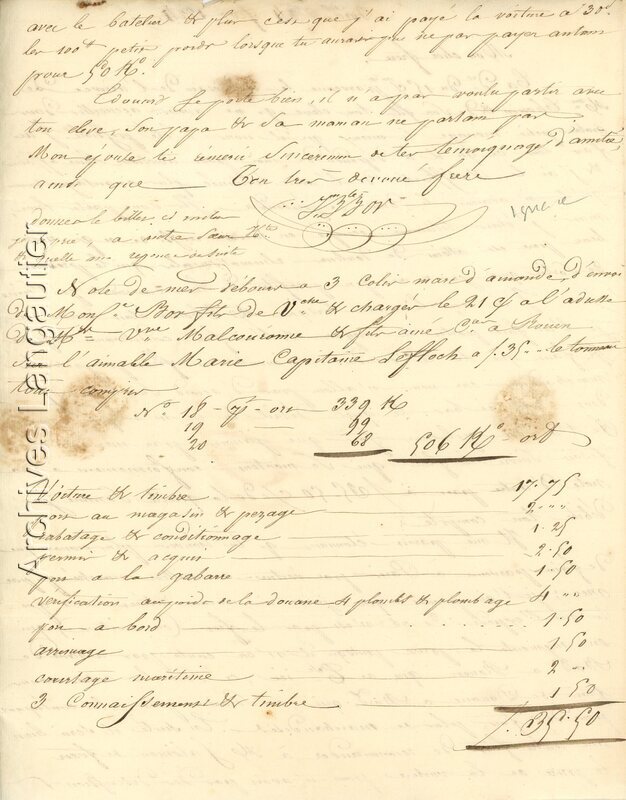 avec le batelier & plus cese que j'ai payé la voiture à 30s
les 100 lt petit poids lorsque tu auras pu ne pas payer autant
pour 50 Ko
Edouard se porte bien, il n'a pas voulu partir avec
ton eleve, son papa & sa maman ne partant pas.
Mon épouse te remercie sincèrement de tes témoignages d'amitié
ainsi que Ton tres devoué frere
Bor
Ignace
donner le billet ci inclus
a notre sœur
quelle me reponde de suite
Note de mes débours a 3 colis marc d'amande d'envoi
de Monsr Bor fils de & chargés le 21 a l'adresse
de Vve Malcouronne & fils ainé a Rouen
sur l'aimable Marie Capitaine Lefloch a f.35.. le tonneau
tous compris
No 18 - ord 339 K
19 — 99
20 68 506 Ko ord
Voiture & timbre 17.75
port au magasin & pezage 2 " "
rabatage & conditionnage 1.25
permis & acquit 2.50
port a la gabarre 1.50
verification au poids de la douane 4 plombs & plombage 4 "
port a bord 1.50
arrimage 1.50
courtage maritime 2 "
3 Connaissements & timbre 1.50
f. 35.50
Archives Langautier